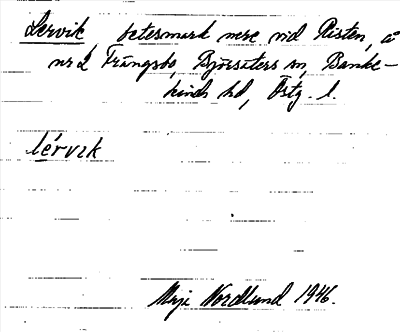 Lervik betesmark nere vid Risten, å
nr 2 Frängsbo, Björsäters sn, Banke-
kinds hd, Östg. l.
lérvik
Maja Nordlund 1946.